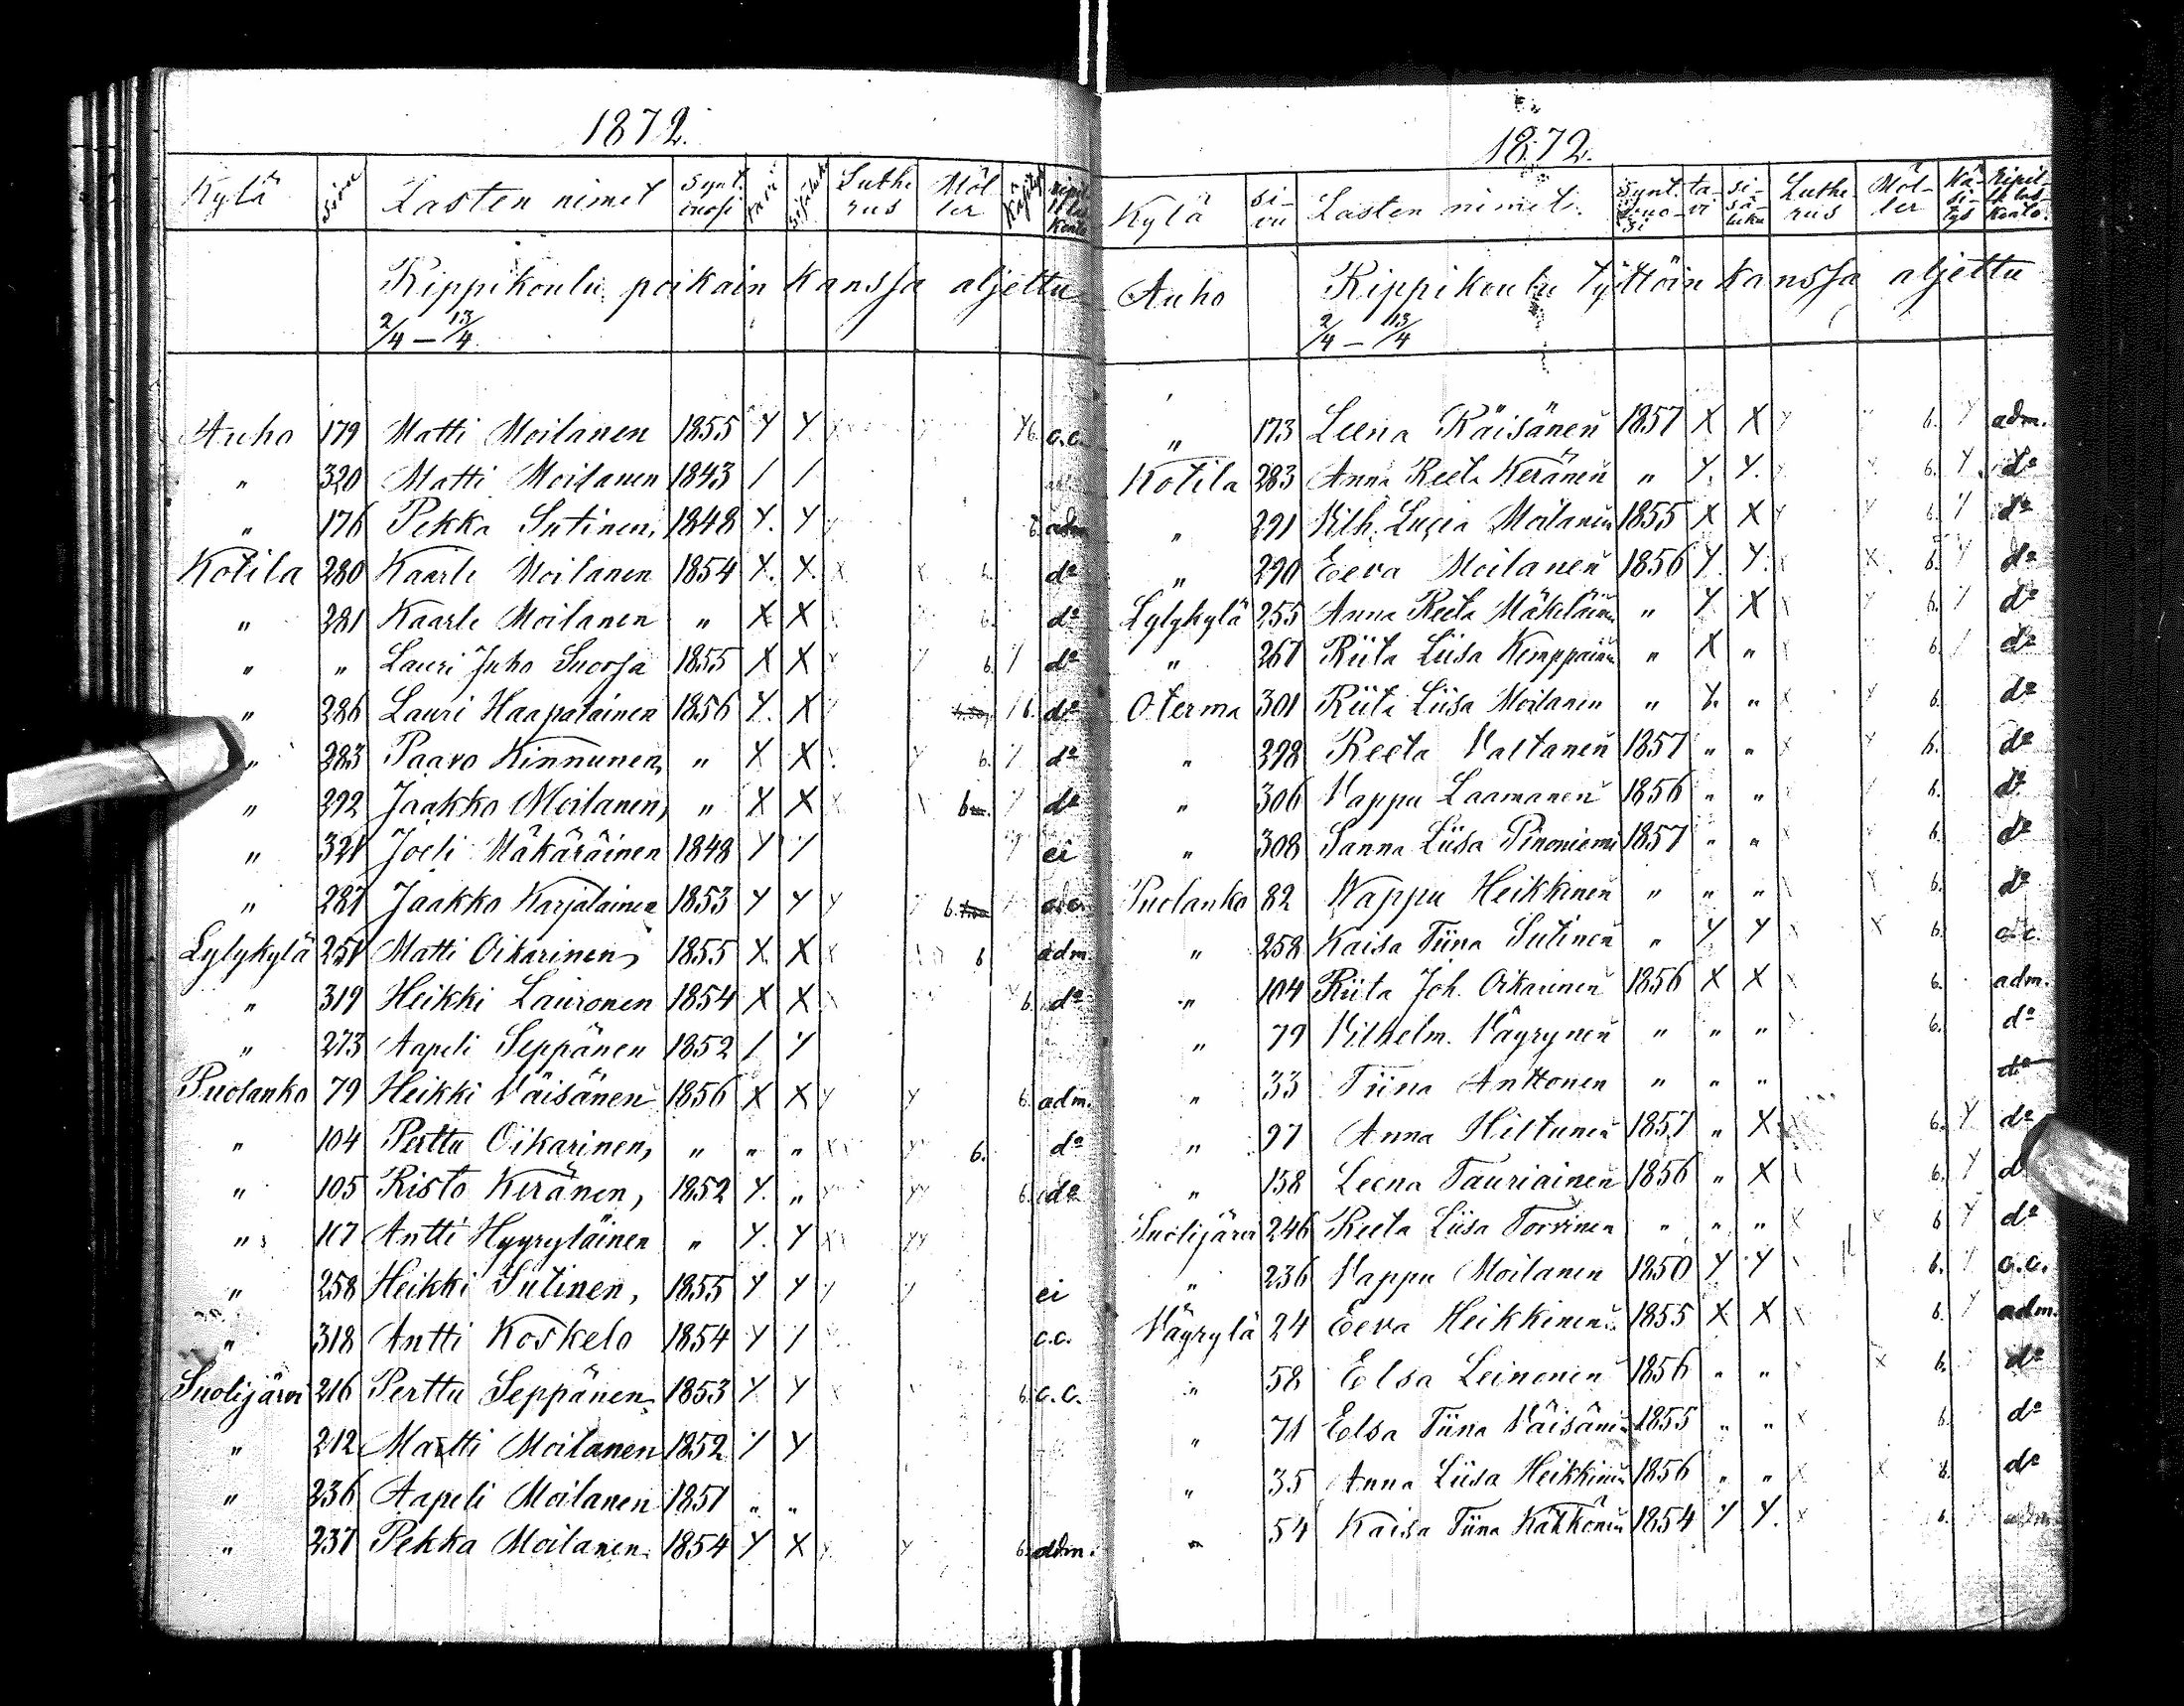 1872.
Kylä Sivu Lasten nimet Synt. vuosi tavu sisäluku Luthe rus Möl ler Käsitys
Rippikoulu poikain kanssa aljettu
2/4 – 13/4
Auho 179 Matti Moilanen 1855 Y Y c.c.
" 320 Matti Moilanen 1843 / /
" 176 Pekka Sutinen, 1848 Y. Y 6. adm
Kotila 280 Kaarle Moilanen 1854 X. X. X X 6. do
" 281 Kaarle Moilanen " X X 6. do
" " Lauri Juho Suorsa 1855 X X 6. do
" 286 Lauri Haapalainen 1856 Y. X 6. do
" 283 Paavo Kinnunen, " X X 6. do
" 292 Jaakko Moilanen, " X X 6 do
" 321 Joeli Mäkäräinen 1848 Y / ei
" 287 Jaakko Karjalainen 1853 Y Y 6. c.c.
Lylykylä 251 Matti Oikarinen, 1855 X X 6 adm.
" 319 Heikki Lauronen 1854 X X 6. do
" 273 Aapeli Seppänen 1852 / Y
Puolanko 79 Heikki Väisänen 1856 X X Y Y 6. adm.
" 104 Perttu Oikarinen, " " " 6. do
" 105 Risto Keränen, 1852 Y. " 6. do
" 117 Antti Hyyryläinen " Y. Y
" 258 Heikki Sutinen, 1855 Y Y Y Y ei
" 318 Antti Koskelo 1854 Y / c.c.
Suolijärvi 216 Perttu Seppänen, 1853 Y Y 6. c.c.
" 212 Martti Moilanen 1852 Y Y
" 236 Aapeli Moilanen 1851 " "
" 237 Pekka Moilanen 1854 Y X Y Y 6. adm.
1872.
Kylä si- vu Lasten nimet. Synt. vuo- si ta- vi si- sä- luku Luthe- rus Möl- ler Kä- si- tys
Auho Rippikoulu tyttöin kanssa aljettu
2/4 – 13/4
" 173 Leena Räisänen 1857 X X 6. Y adm.
Kotila 283 Anna Reeta Keränen " Y. Y. 6. Y do
" 291 Vilh. Lucia Moilanen 1855 X X 6. Y do
" 290 Eeva Moilanen 1856 Y Y. X. 6. Y do
Lylykylä 255 Anna Reeta Mäkeläinen " Y X 6. do
" 267 Riita Liisa Kemppainen " X " 6. do
Oterma 301 Riita Liisa Moilanen " Y. " 6. do
" 298 Reeta Valtanen 1857 " " 6. do
" 306 Vappu Laamanen 1856 " " 6. do
" 308 Sanna Liisa Pinoniemi 1857 " " 6. do
Puolanko 82 Vappu Heikkinen " " " 6. do
" 258 Kaisa Tiina Sutinen " Y Y X 6. c.c.
" 104 Riita Joh. Oikarinen 1856 X X 6. adm.
" 79 Vilhelm. Väyrynen " " " 6. do
" 33 Tiina Anttonen " " " do
" 97 Anna Hiltunen 1857 " X 6. Y do
" 158 Leena Tauriainen 1856 " X 6. Y d
Suolijärvi 246 Reeta Liisa Torvinen " " " X X 6 Y do
" 236 Vappu Moilanen 1850 Y. Y 6. c.c.
Väyrylä 24 Eeva Heikkinen 1855 X X 6. Y adm.
" 58 Elsa Leinonen 1856 " " X 6. do
" 71 Elsa Tiina Väisänen 1855 " " X 6. do
" 35 Anna Liisa Heikkinen 1856 " " X X 6. do
" 54 Kaisa Tiina Kätkönen 1854 Y Y. X 6. adm.